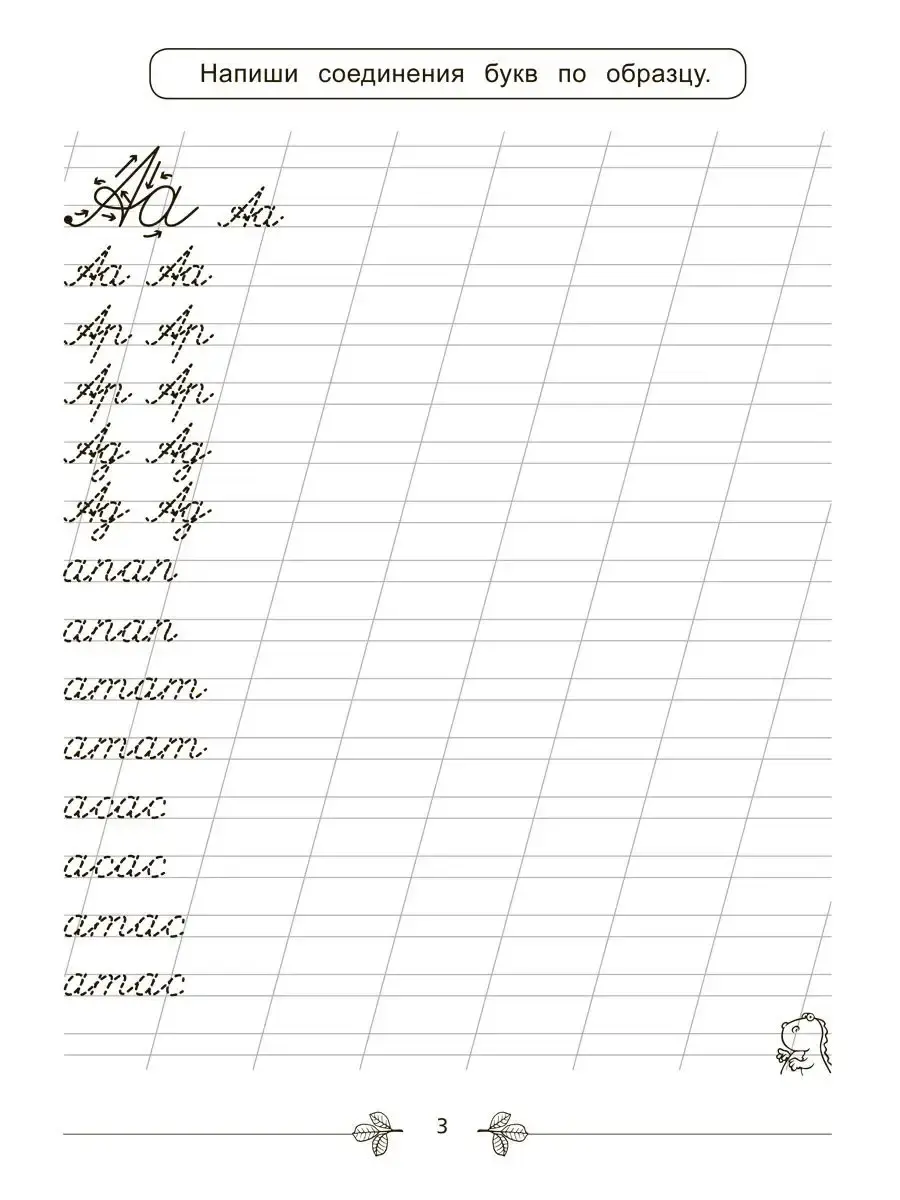 Напиши соединения букв по образцу.
Аа Аа
Аа Аа
Ар Ар
Ар Ар
Ад Ад
Ад Ад
апап
апап
атат
атат
асас
асас
атас
атас
3